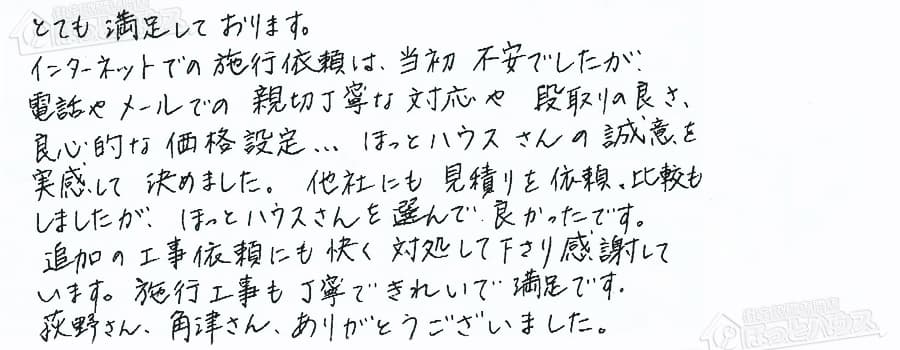 とても満足しております。
インターネットでの施行依頼は、当初 不安でしたが、
電話やメールでの 親切丁寧な対応や 段取りの良さ、
良心的な価格設定... ほっとハウスさんの誠意を
実感して 決めました。 他社にも 見積りを依頼、比較も
しましたが、ほっとハウスさんを選んで 良かったです。
追加の工事依頼にも 快く 対処して下さり感謝して
います。施行工事も 丁寧できれいで 満足です.
荻野さん、角津さん、ありがとうございました。
ほっとハウス